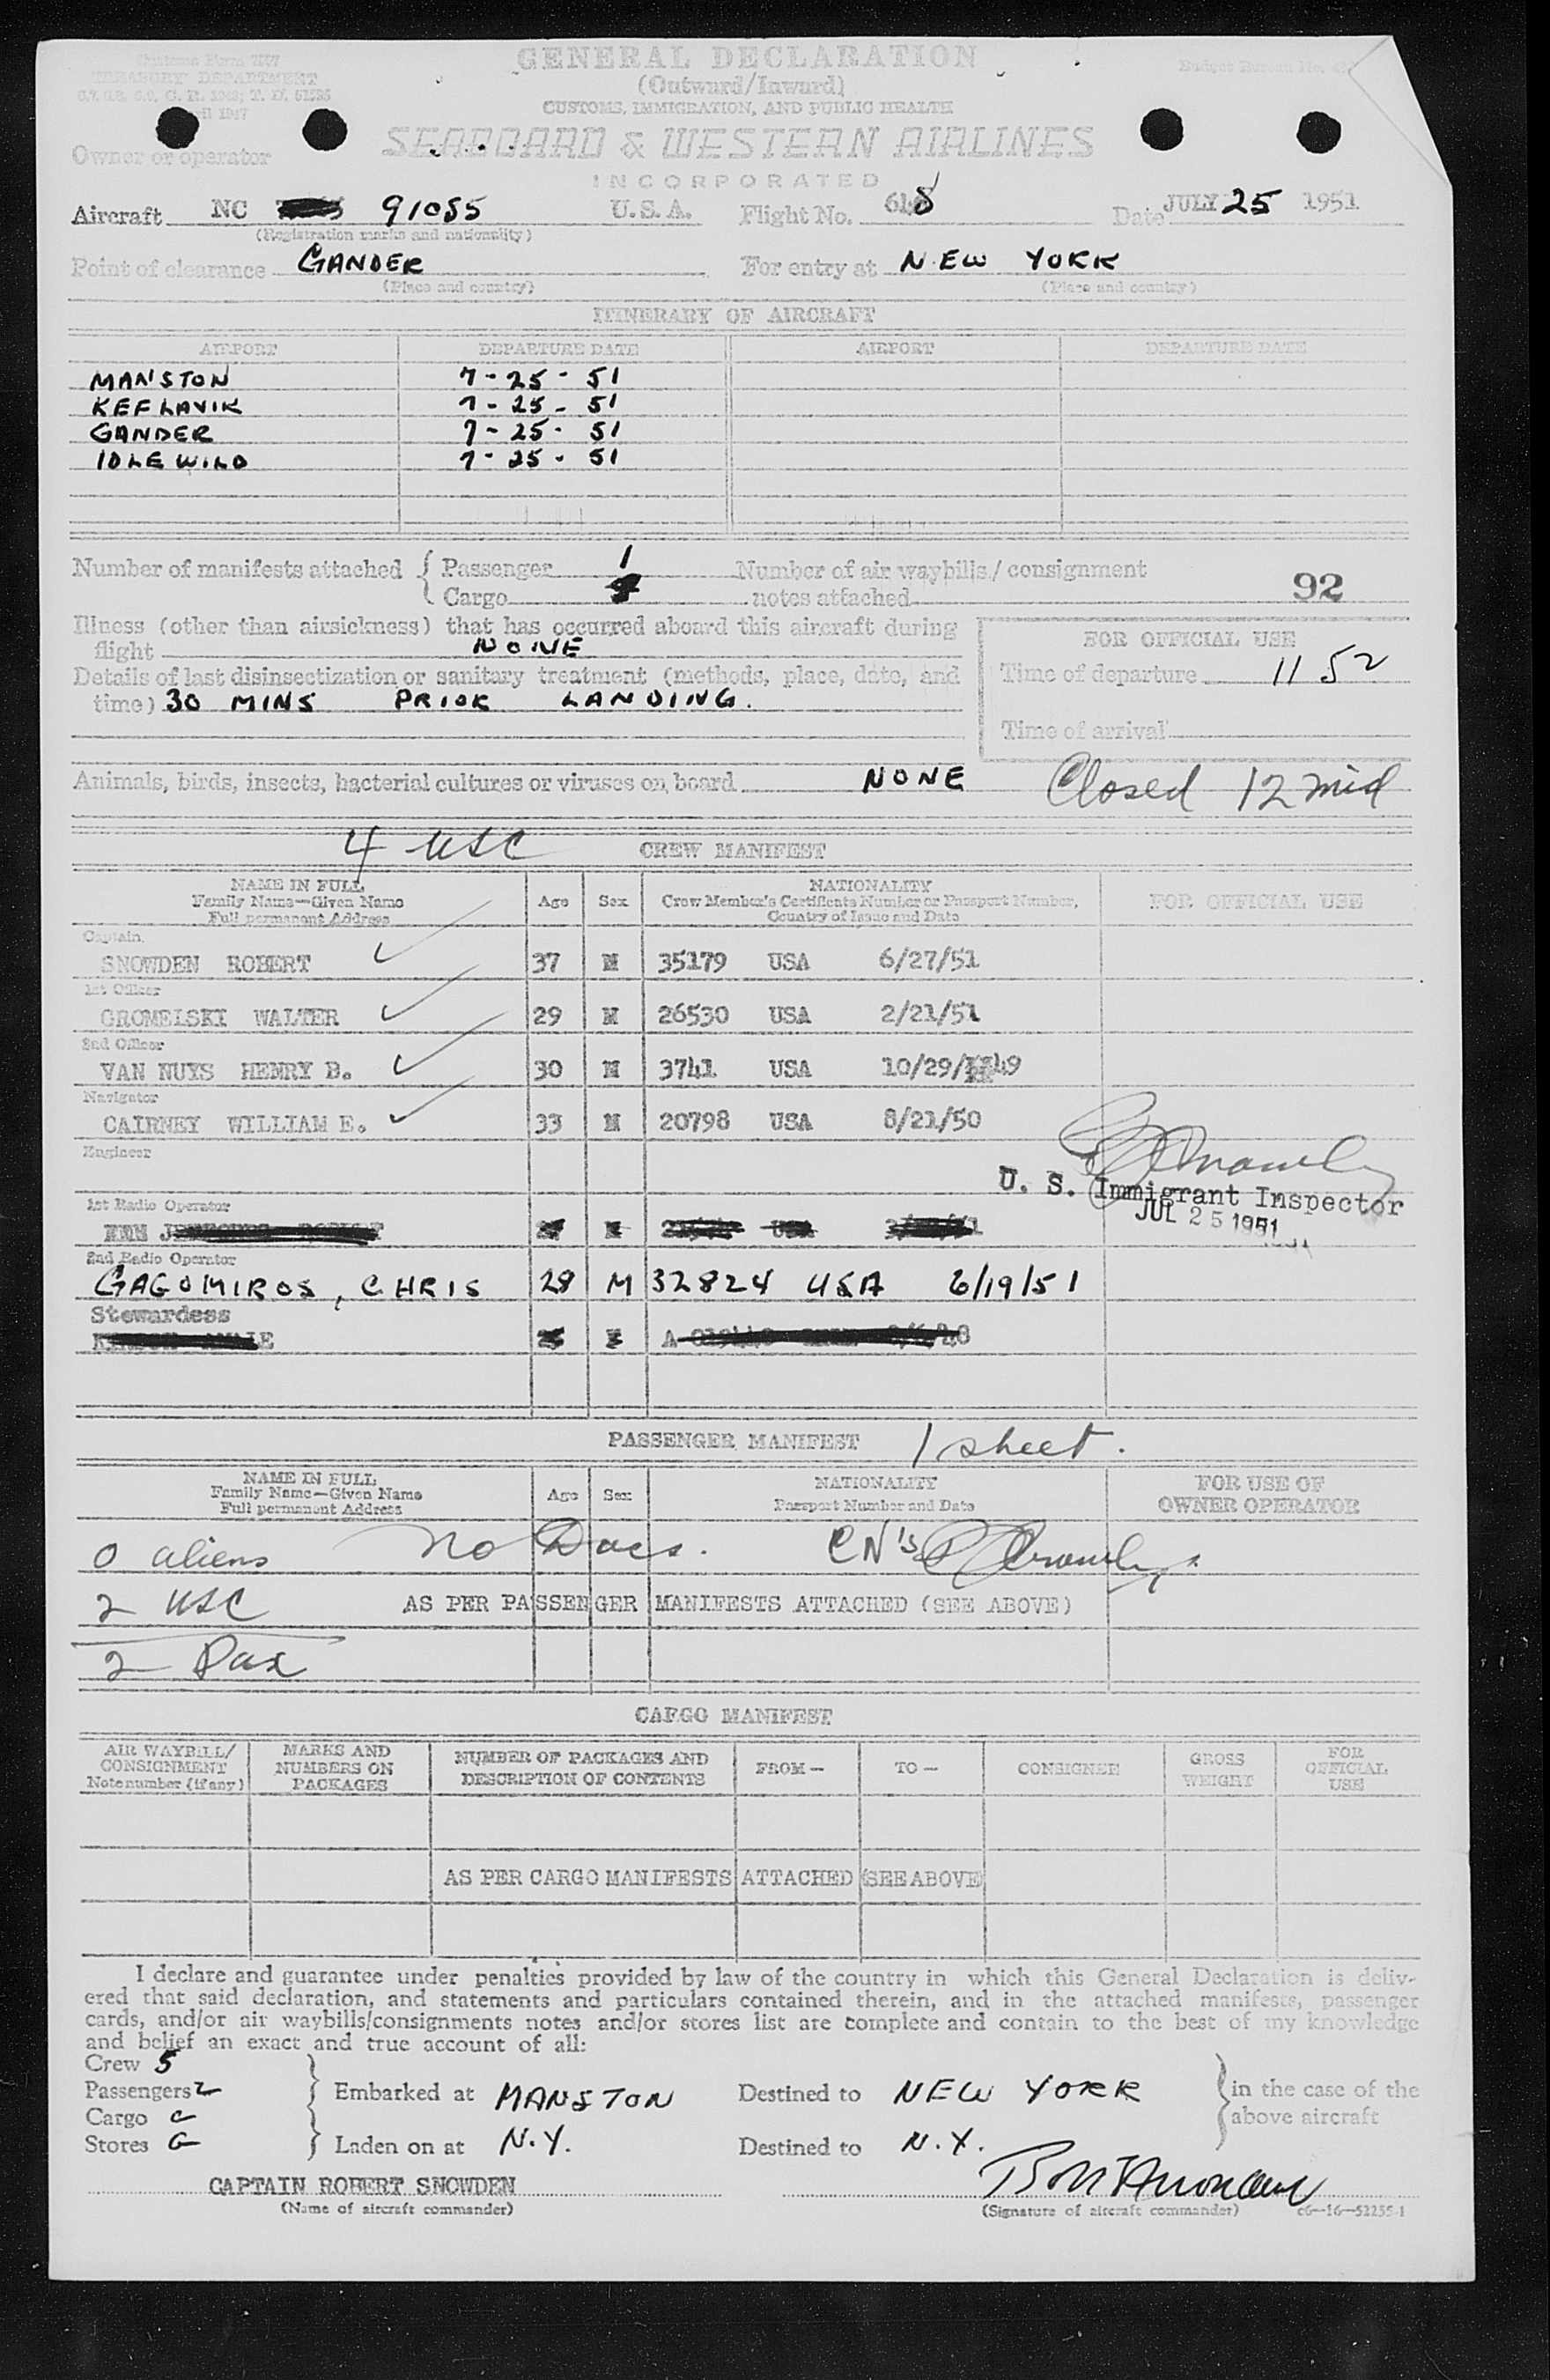 Customs Form 7507
TREASURY DEPARTMENT
GENERAL DECLARATION
(Outward/Inward)
CUSTOMS, IMMIGRATION, AND PUBLIC HEALTH
Budget Bureau No.
SEABOARD & WESTERN AIRLINES
INCORPORATED
Owner or operator
Aircraft NC 91085 U.S.A. Flight No. Date JULY 25 1951
(Registration marks and nationality)
Point of clearance GANDER For entry at NEW YORK
(Place and country) (Place and country)
ITINERARY OF AIRCRAFT
AIRPORT DEPARTURE DATE AIRPORT DEPARTURE DATE
MANSTON 7-25-51
KEFLAVIK 7-25-51
GANDER 7-25-51
IDLEWILD 7-25-51
Number of manifests attached { Passenger 1 Number of air waybills/consignment
Cargo notes attached 92
Illness (other than airsickness) that has occurred aboard this aircraft during
flight NONE
FOR OFFICIAL USE
Details of last disinsectization or sanitary treatment (methods, place, date, and
time) 30 MINS PRIOR LANDING.
Time of departure 11 52
Time of arrival
Animals, birds, insects, bacterial cultures or viruses on board NONE Closed 12 mid
4 USC CREW MANIFEST
NAME IN FULL
Family Name—Given Name
Full permanent Address
Age Sex
NATIONALITY
Crew Member's Certificate Number or Passport Number,
Country of Issue and Date
FOR OFFICIAL USE
Captain
SNOWDEN ROBERT 37 M 35179 USA 6/27/51
1st Officer
GROMELSKI WALTER 29 M 26530 USA 2/21/51
2nd Officer
VAN NUYS HENRY B. 30 M 3741 USA 10/29/49
Navigator
CAIRNEY WILLIAM E. 33 M 20798 USA 8/21/50
Engineer
U. S. Immigrant Inspector
JUL 25 1951
1st Radio Operator
2nd Radio Operator
GAGOMIROS, CHRIS 28 M 32824 USA 6/19/51
Stewardess
PASSENGER MANIFEST 1 sheet.
NAME IN FULL
Family Name—Given Name
Full permanent Address
Age Sex
NATIONALITY
Passport Number and Date
FOR USE OF
OWNER OPERATOR
0 aliens No Docs. CN's
2 USC AS PER PASSENGER MANIFESTS ATTACHED (SEE ABOVE)
2 Pax
CARGO MANIFEST
AIR WAYBILL/
CONSIGNMENT
Note number (if any)
MARKS AND
NUMBERS ON
PACKAGES
NUMBER OF PACKAGES AND
DESCRIPTION OF CONTENTS
FROM— TO— CONSIGNEE
GROSS
WEIGHT
FOR
OFFICIAL
USE
AS PER CARGO MANIFESTS ATTACHED (SEE ABOVE)
I declare and guarantee under penalties provided by law of the country in which this General Declaration is deliv-
ered that said declaration, and statements and particulars contained therein, and in the attached manifests, passenger
cards, and/or air waybills/consignments notes and/or stores list are complete and contain to the best of my knowledge
and belief an exact and true account of all:
Crew 5
Passengers 2 Embarked at MANSTON Destined to NEW YORK in the case of the
Cargo above aircraft
Stores Laden on at N.Y. Destined to N.Y.
CAPTAIN ROBERT SNOWDEN
(Name of aircraft commander) (Signature of aircraft commander) c6—16—52255-1